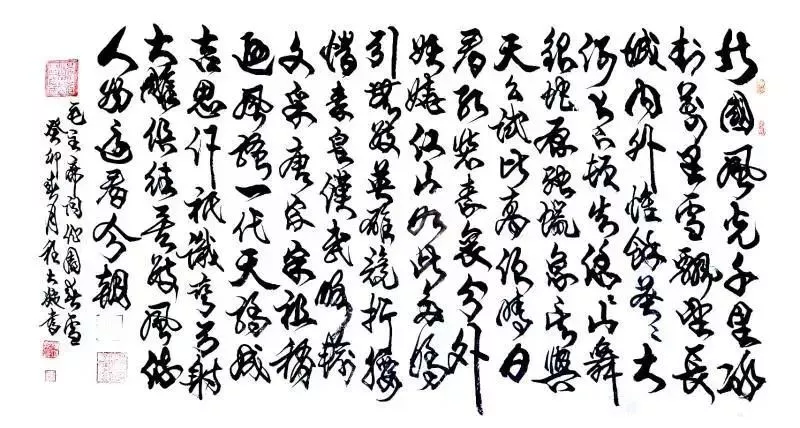 北國風光千里冰
封萬里雪飄望長
城內外惟餘莽〻大
河上下頓失滔〻山舞
銀蛇原馳蠟象欲與
天公試比高須晴日
看紅裝素裹分外
妖嬈江山如此多嬌
引無數英雄競折腰
惜秦皇漢武略輸
文采唐宗宋祖稍
遜風騷一代天驕成
吉思汗祇識彎弓射
大雕俱往矣數風流
人物還看今朝
毛主席詞沁園春雪
癸卯春月程大書